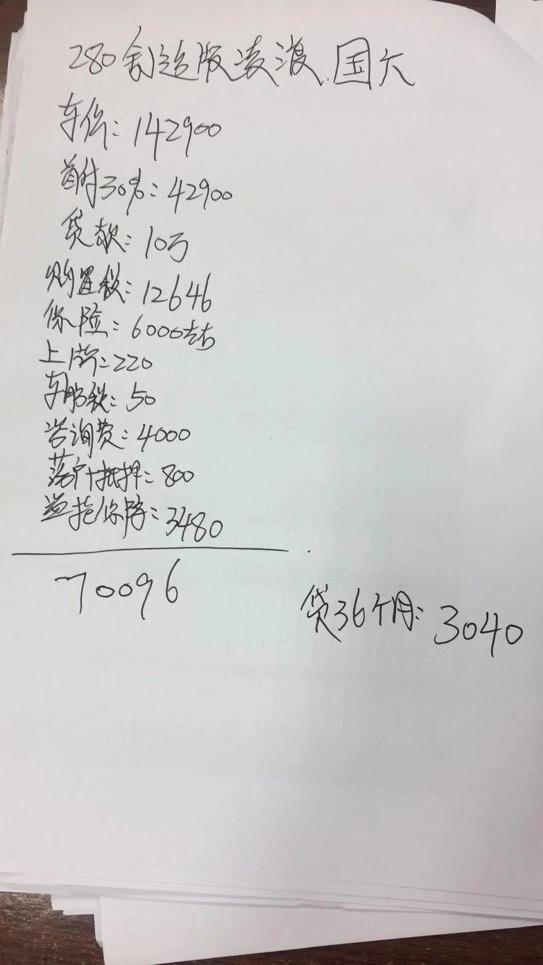 280创造版凌渡.国六
车价：142900
首付30%：42900
贷款：10万
购置税：12646
保险：6000左右
上牌：220
车船税：50
咨询费：4000
落户+抵押：800
盗抢保障：3480
70096
贷36个月：3040